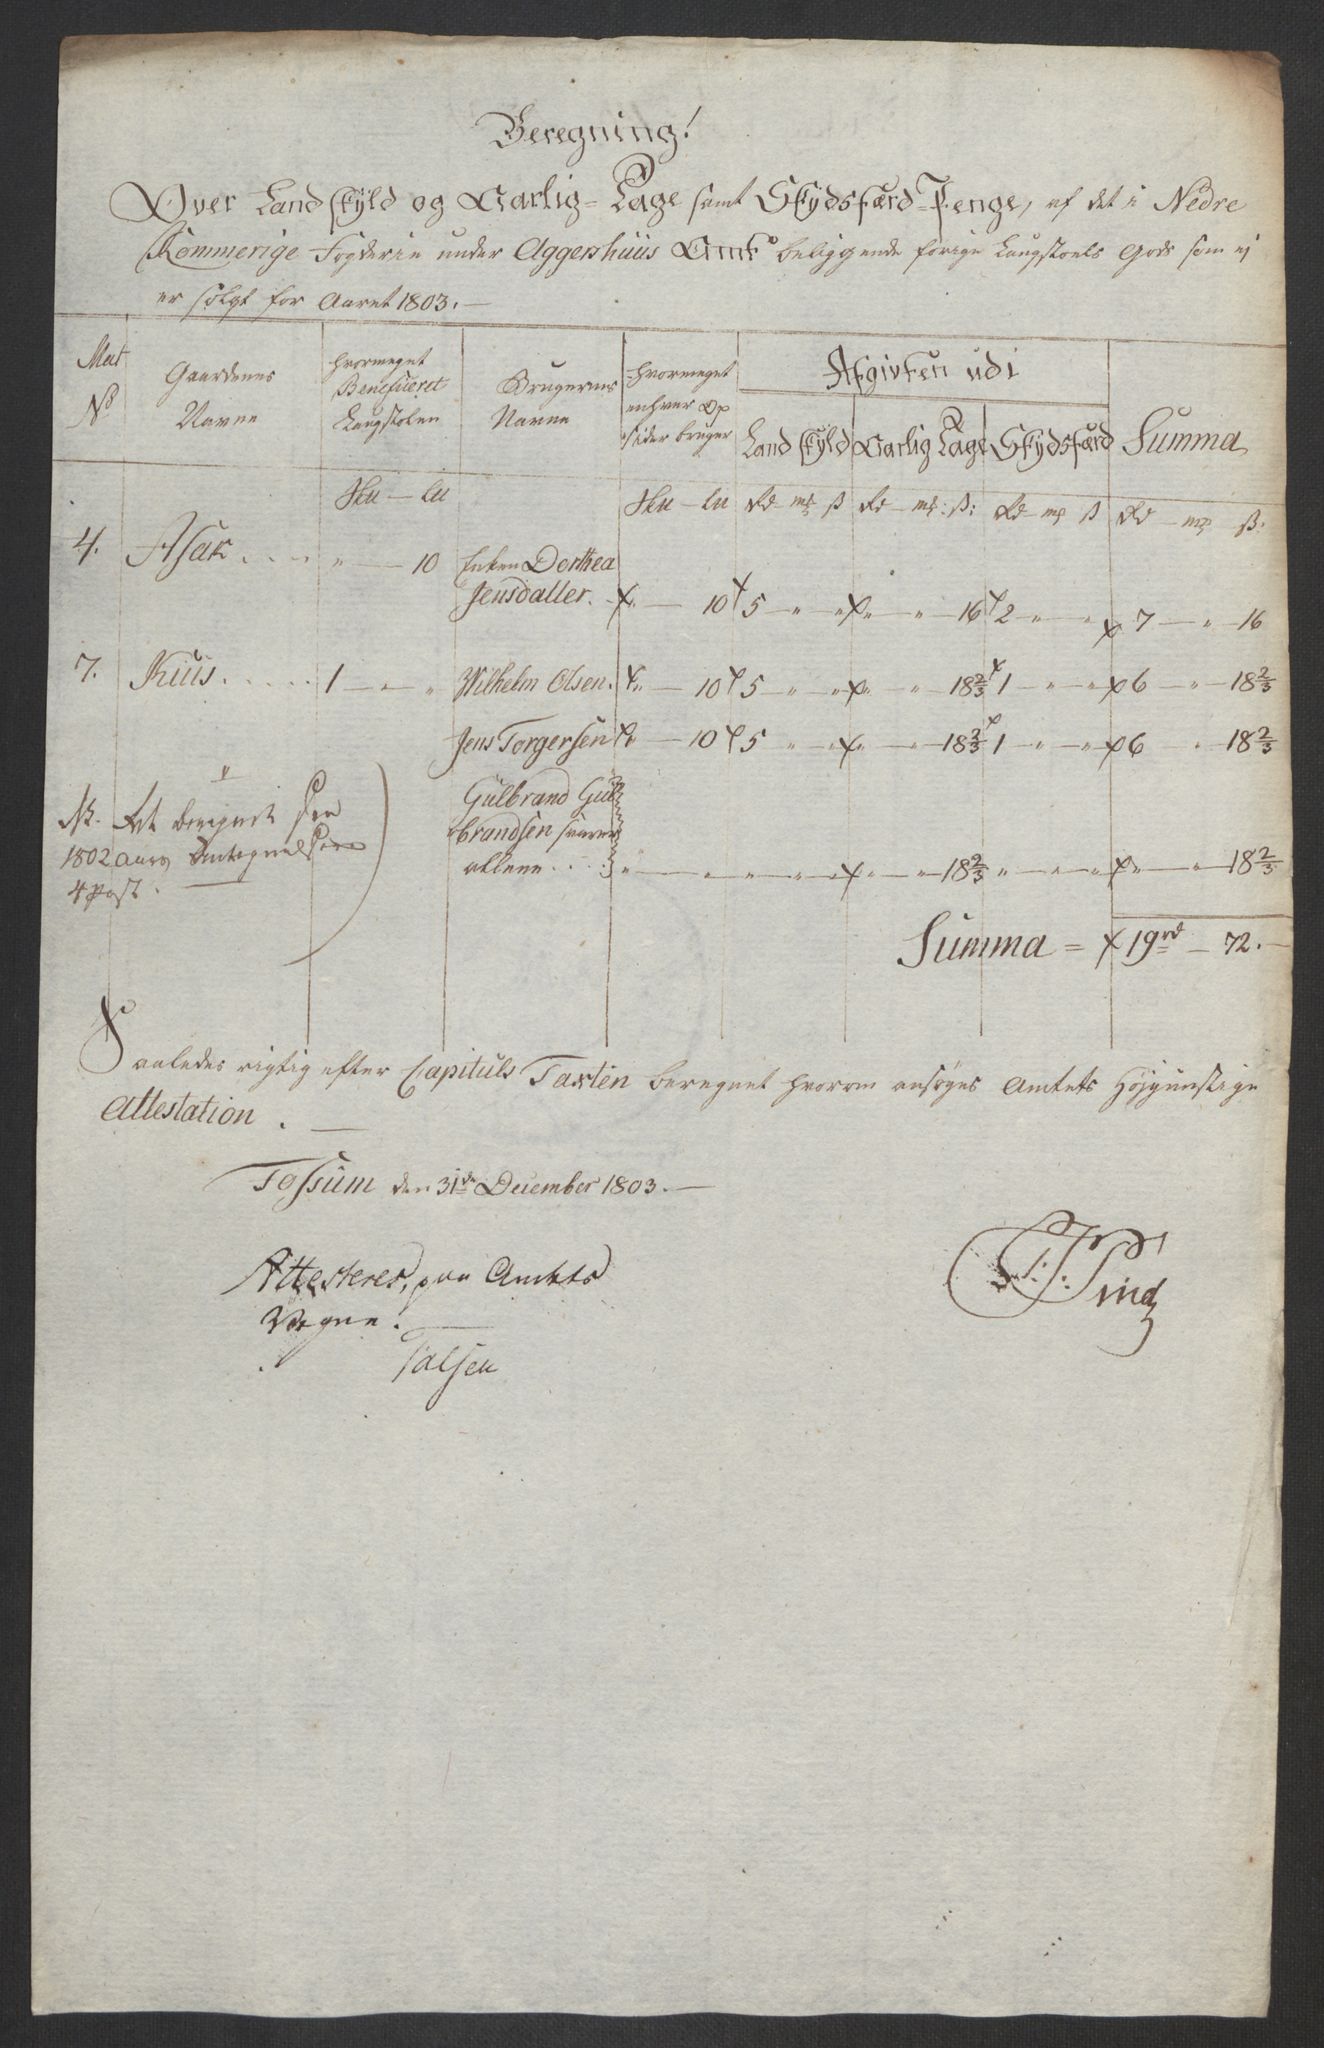 Beregning!
Over Landskyld og Aarlig-Tage samt Skydsfærd-Penge, af det i Nedre
Rommerige Fogderie under Aggershuus Amt beliggende forrige Laugstoels Gods som ej
er solgt for Aaret 1803. —
Mat No | Gaardenes Navne | Hvormeget Beneficeret Laugstolen | Brugernes Navne | Hvormeget enhver Opsider bruger | Afgivten udi | Summa
Landskyld | Aarlig Tage | Skydsfærd
Sku — Lu | Sku — Lu | Rd — mk ß | Rd — mk: ß: | Rd — mk ß | Rd — mk ß:
4. Asak . . . . " — 10 Enken Dorthea
Jensdatter. " — 10 5 " " " " 16 2 " " 7 — " — 16
7. Kuus . . . . . 1 — " Wilhelm Olsen. " — 10 5 " " " " 18 2/3 1 " " 6 — " — 18 2/3
Jens Torgersen " — 10 5 " " " " 18 2/3 1 " " 6 " — 18 2/3
Gulbrand Gul
brandsen svarer
allene . . . " — " " " " " " 18 2/3 " " " " — " — 18 2/3
NB.
1802 Aars
4 Post. —
Summa = 19 rd — 72. —
Saaledes rigtig efter Capituls Taxten beregnet hvorom ansøges Amtets Højgunstige
Attestation . —
Tossum den 31de December 1803. —
Attesteres, paa Amtets
Vegne.